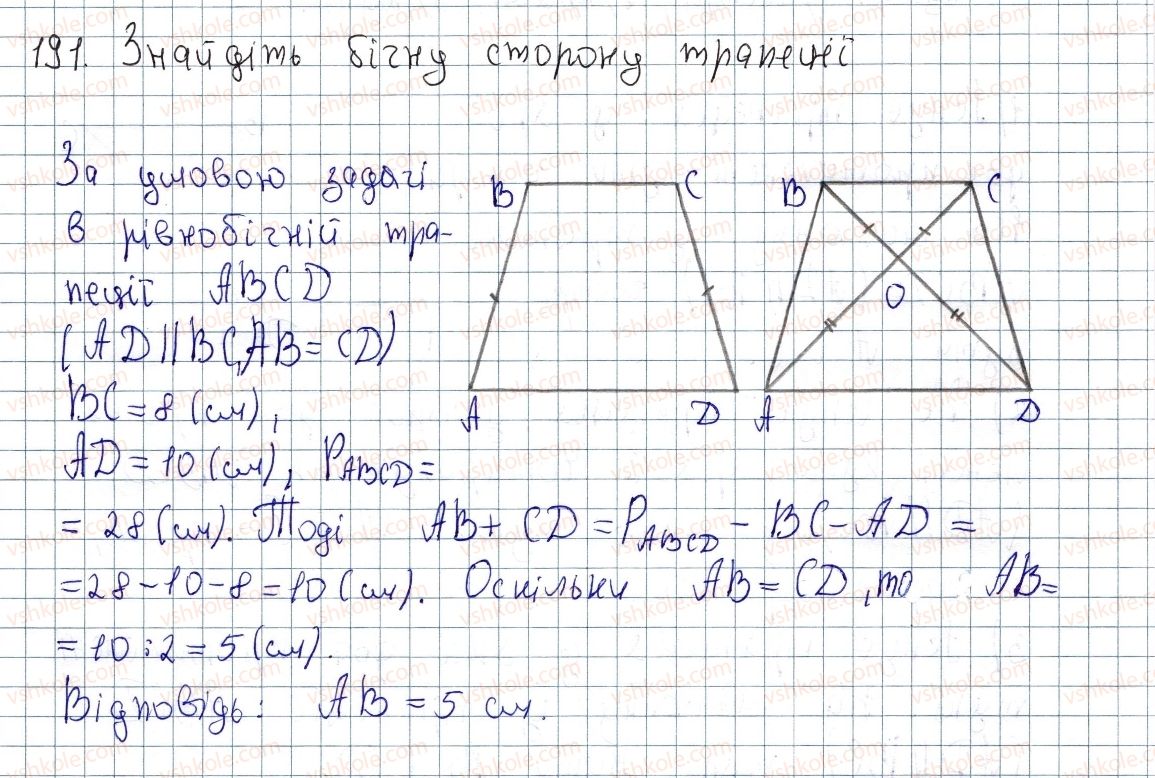 191. Знайдіть бічну сторону трапеції
За умовою задачі
в рівнобічній тра-
пеції ABCD
(AD || BC, AB = CD)
BC = 8 (см),
AD = 10 (см), P_ABCD =
= 28 (см). Тоді AB + CD = P_ABCD - BC - AD =
= 28 - 10 - 8 = 10 (см). Оскільки AB = CD, то AB =
= 10 : 2 = 5 (см).
Відповідь: AB = 5 см.
B C B C
O
A D A D